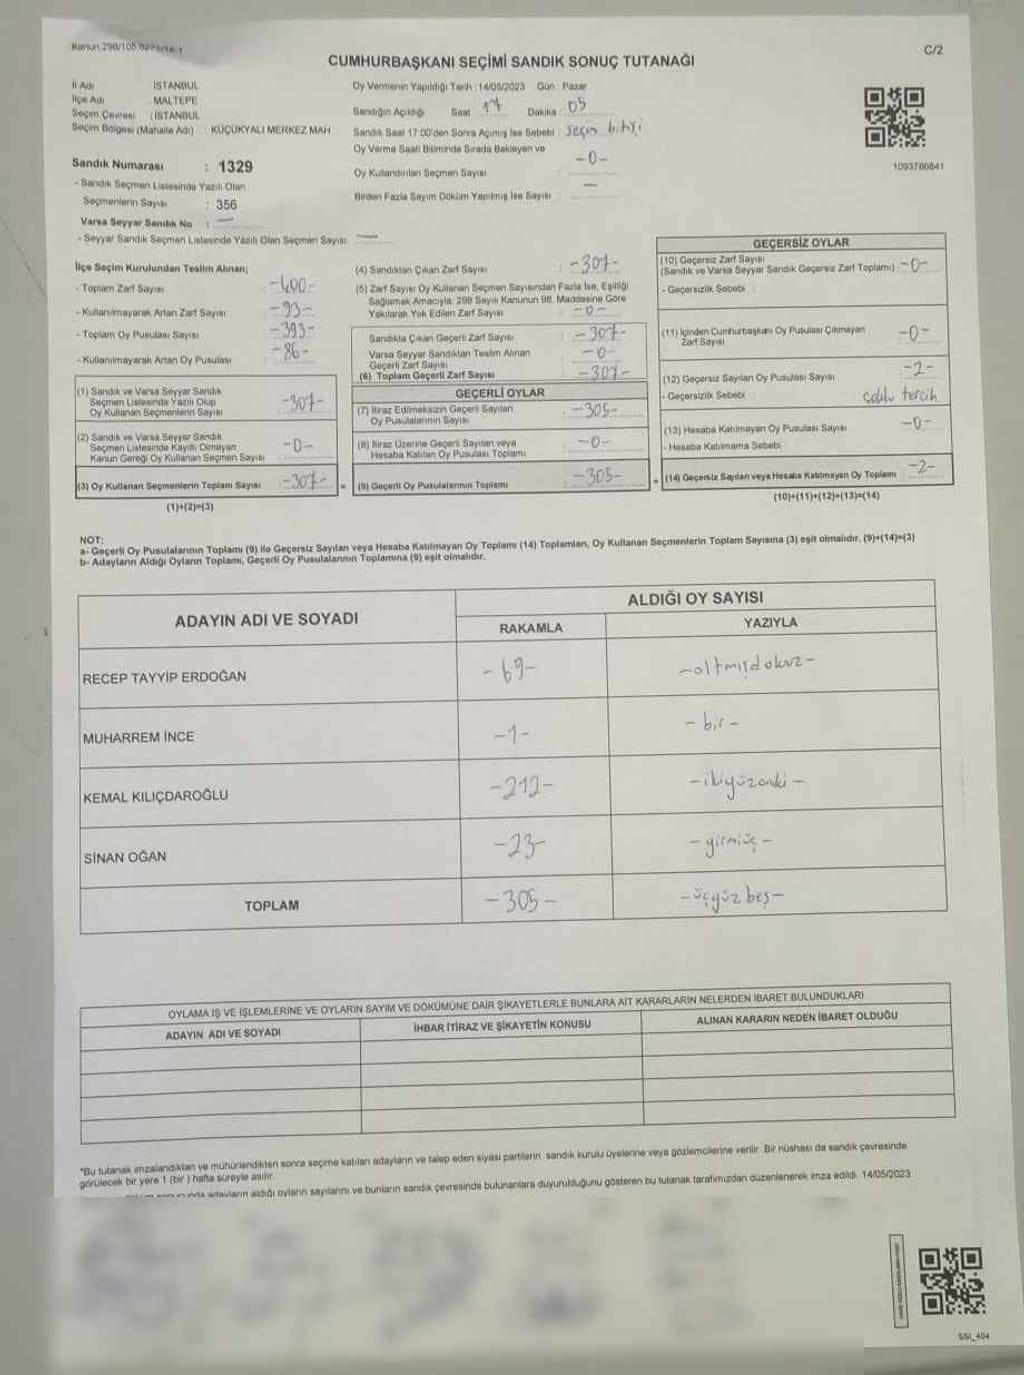 CUMHURBAŞKANI SEÇİMİ SANDIK SONUÇ TUTANAĞI
C/2
İl Adı İSTANBUL
İlçe Adı MALTEPE
Seçim Çevresi : İSTANBUL
Seçim Bölgesi (Mahalle Adı) : KÜÇÜKYALI MERKEZ MAH
Sandık Numarası : 1329
- Sandık Seçmen Listesinde Yazılı Olan
Seçmenlerin Sayısı : 356
Varsa Seyyar Sandık No : —
- Seyyar Sandık Seçmen Listesinde Yazılı Olan Seçmen Sayısı —
Oy Vermenin Yapıldığı Tarih : 14/05/2023 Gün : Pazar
Sandığın Açıldığı Saat 17 Dakika : 05
Sandık Saat 17:00'den Sonra Açılmış İse Sebebi : seçim bitişi
Oy Verme Saati Bitiminde Sırada Bekleyen ve
Oy Kullandırılan Seçmen Sayısı -0-
Birden Fazla Sayım Döküm Yapılmış İse Sayısı —
1093766841
İlçe Seçim Kurulundan Teslim Alınan;
- Toplam Zarf Sayısı -400-
- Kullanılmayarak Artan Zarf Sayısı -93-
- Toplam Oy Pusulası Sayısı -393-
- Kullanılmayarak Artan Oy Pusulası -86-
(1) Sandık ve Varsa Seyyar Sandık
Seçmen Listesinde Yazılı Olup
Oy Kullanan Seçmenlerin Sayısı -307-
(2) Sandık ve Varsa Seyyar Sandık
Seçmen Listesinde Kayıtlı Olmayan
Kanun Gereği Oy Kullanan Seçmen Sayısı -0-
(3) Oy Kullanan Seçmenlerin Toplam Sayısı -307- =
(1)+(2)=(3)
(4) Sandıktan Çıkan Zarf Sayısı : -307-
(5) Zarf Sayısı Oy Kullanan Seçmen Sayısından Fazla İse, Eşitliği
Sağlamak Amacıyla; 298 Sayılı Kanunun 98. Maddesine Göre
Yakılarak Yok Edilen Zarf Sayısı -0-
Sandıkta Çıkan Geçerli Zarf Sayısı : -307-
Varsa Seyyar Sandıktan Teslim Alınan
Geçerli Zarf Sayısı -0-
(6) Toplam Geçerli Zarf Sayısı -307-
GEÇERLİ OYLAR
(7) İtiraz Edilmeksizin Geçerli Sayılan
Oy Pusulalarının Sayısı : -305-
(8) İtiraz Üzerine Geçerli Sayılan veya
Hesaba Katılan Oy Pusulası Toplamı : -0-
(9) Geçerli Oy Pusulalarının Toplamı : -305- +
GEÇERSİZ OYLAR
(10) Geçersiz Zarf Sayısı
(Sandık ve Varsa Seyyar Sandık Geçersiz Zarf Toplamı) : -0-
- Geçersizlik Sebebi :
(11) İçinden Cumhurbaşkanı Oy Pusulası Çıkmayan
Zarf Sayısı -0-
(12) Geçersiz Sayılan Oy Pusulası Sayısı -2-
- Geçersizlik Sebebi : çoklu tercih
(13) Hesaba Katılmayan Oy Pusulası Sayısı -0-
- Hesaba Katılmama Sebebi :
(14) Geçersiz Sayılan veya Hesaba Katılmayan Oy Toplamı -2-
(10)+(11)+(12)+(13)=(14)
NOT:
a- Geçerli Oy Pusulalarının Toplamı (9) ile Geçersiz Sayılan veya Hesaba Katılmayan Oy Toplamı (14) Toplamları, Oy Kullanan Seçmenlerin Toplam Sayısına (3) eşit olmalıdır. (9)+(14)=(3)
b- Adayların Aldığı Oyların Toplamı, Geçerli Oy Pusulalarının Toplamına (9) eşit olmalıdır.
ADAYIN ADI VE SOYADI ALDIĞI OY SAYISI
RAKAMLA YAZIYLA
RECEP TAYYİP ERDOĞAN -69- -altmışdokuz-
MUHARREM İNCE -1- -bir-
KEMAL KILIÇDAROĞLU -212- -ikiyüzoniki-
SİNAN OĞAN -23- -yirmiüç-
TOPLAM -305- -üçyüz beş-
OYLAMA İŞ VE İŞLEMLERİNE VE OYLARIN SAYIM VE DÖKÜMÜNE DAİR ŞİKAYETLERLE BUNLARA AİT KARARLARIN NELERDEN İBARET BULUNDUKLARI
ADAYIN ADI VE SOYADI İHBAR İTİRAZ VE ŞİKAYETİN KONUSU ALINAN KARARIN NEDEN İBARET OLDUĞU
*Bu tutanak imzalandıktan ve mühürlendikten sonra seçime katılan adayların ve talep eden siyasi partilerin sandık kurulu üyelerine veya gözlemcilerine verilir. Bir nüshası da sandık çevresinde
görülecek bir yere 1 (bir) hafta süreyle asılır.
adayların aldığı oyların sayılarını ve bunların sandık çevresinde bulunanlara duyurulduğunu gösteren bu tutanak tarafımızdan düzenlenerek imza edildi. 14/05/2023
SSI_404